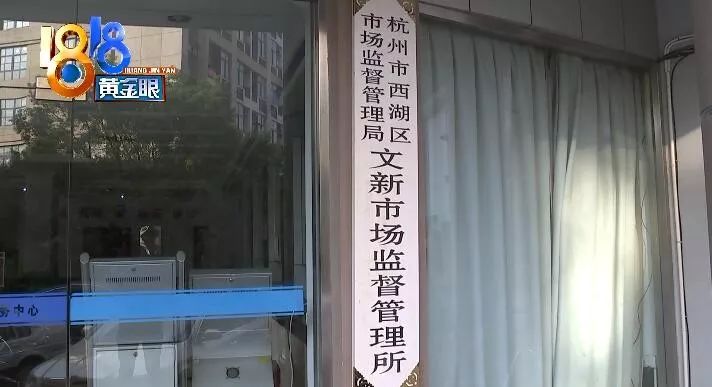 1818
HUANG JIN YAN
黄金眼
杭州市西湖区
市场监督管理局
文新市场监督管理所
务中心